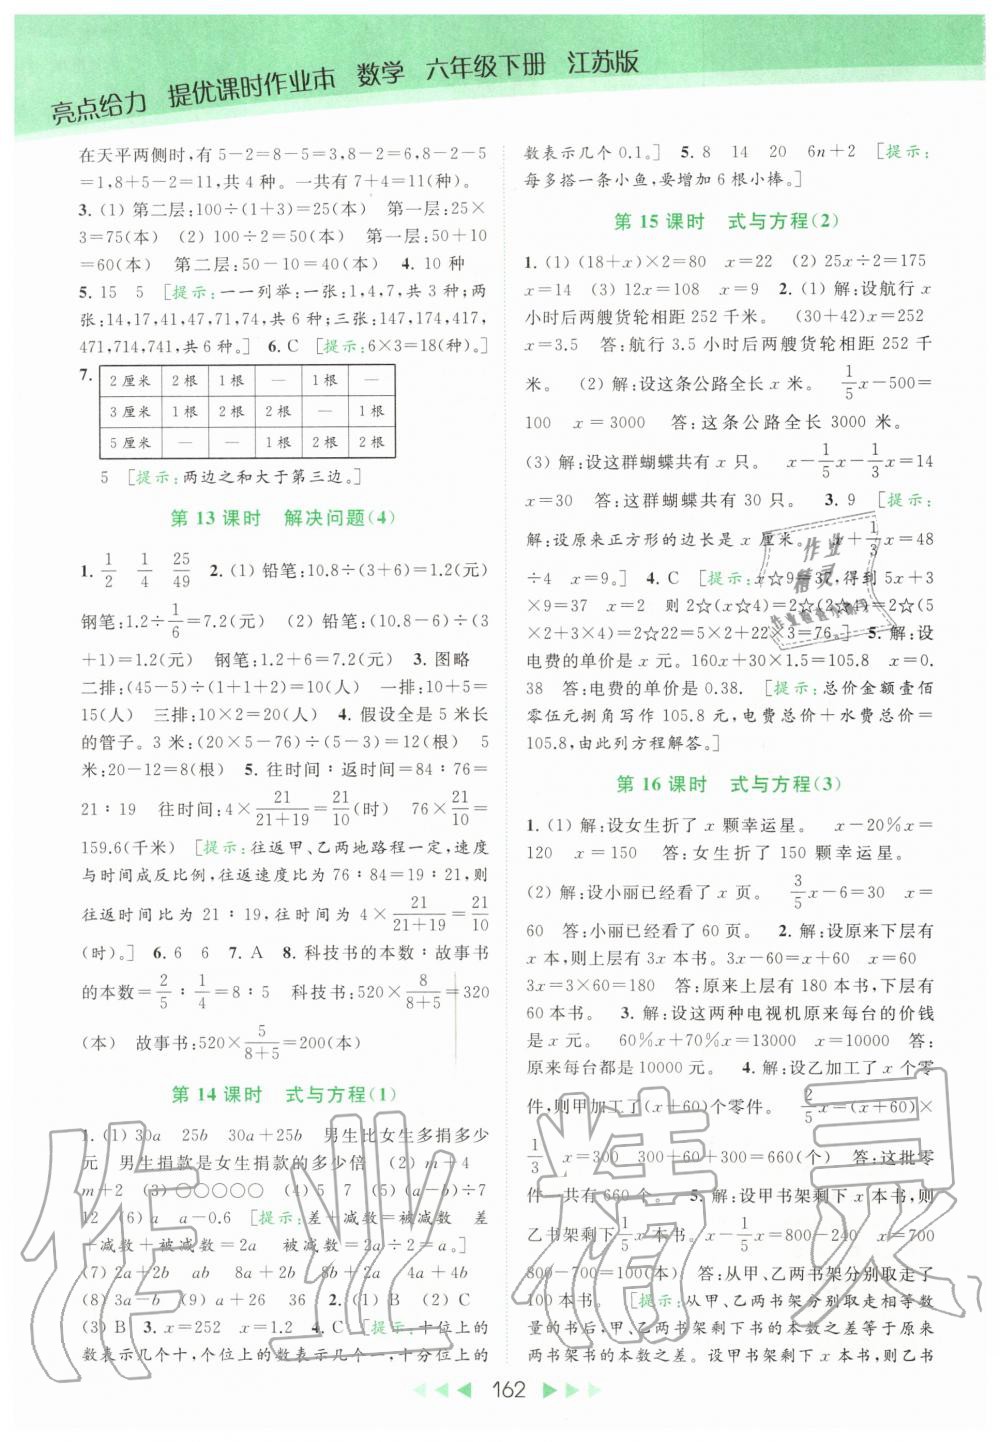 亮点给力 提优课时作业本 数学 六年级下册 江苏版
在天平两侧时,有 5-2=8-5=3,8-2=6,8-2-5
=1,8+5-2=11,共 4 种。一共有 7+4=11(种)。
3. (1) 第二层:100÷(1+3)=25(本) 第一层:25×
3=75(本) (2) 100÷2=50(本) 第一层:50+10
=60(本) 第二层:50-10=40(本) 4. 10 种
5. 15 5 [提示:一一列举:一张:1,4,7,共 3 种;两
张:14,17,41,47,71,74,共 6 种;三张:147,174,417,
471,714,741,共 6 种。] 6. C [提示:6×3=18(种)。]
7.
2 厘米 2 根 1 根 — 1 根 —
3 厘米 1 根 2 根 2 根 — 1 根
5 厘米 — — 1 根 2 根 2 根
5 [提示:两边之和大于第三边。]
第 13 课时 解决问题(4)
1. 1/2 1/4 25/49 2. (1) 铅笔:10.8÷(3+6)=1.2(元)
钢笔:1.2÷1/6=7.2(元) (2) 铅笔:10.8÷(6-1)... 
+1)=1.2(元) 钢笔:1.2+6=7.2(元) 3. 图略
二排:(45-5)÷(1+1+2)=10(人) 一排:10+5=
15(人) 三排:10×2=20(人) 4. 假设全是 5 米长
的管子。3 米:(20×5-76)÷(5-3)=12(根) 5
米:20-12=8(根) 5. 往时间:返时间=84:76=
21:19 往时间:4×21/(21+19)=21/10(时) 76×21/10=
159.6(千米) [提示:往返甲、乙两地路程一定,速度
与时间成反比例,往返速度比为 76:84=19:21,则
往返时间比为 21:19,往时间为 4×21/(21+19)=21/10
(时)。] 6. 6 6 7. A 8. 科技书的本数:故事书
的本数=2/5:1/4=8:5 科技书:520×8/(8+5)=320
(本) 故事书:520×5/(8+5)=200(本)
第 14 课时 式与方程(1)
1. (1) 30a 25b 30a+25b 男生比女生多捐多少
元 男生捐款是女生捐款的多少倍 (2) m+4
m+2 (3) ○○○○○ (4) 5 7 (5) (m-b)÷7
12 (6) a a-0.6 [提示:差+减数=被减数 差
+减数+被减数=2a 被减数=2a÷2=a。]
(7) 2a+2b ab 8a+2b 2a+8b 4a+4b
(8) 3a-b (9) a+26 36 2. (1) B (2) C
(3) B 3. x=252 x=1.2 4. C [提示:十位上的
数表示几个十,个位上的数表示几个一,十分位上的
数表示几个 0.1。] 5. 8 14 20 6n+2 [提示:
每多搭一条小鱼,要增加 6 根小棒。]
第 15 课时 式与方程(2)
1. (1) (18+x)×2=80 x=22 (2) 25x÷2=175
x=14 (3) 12x=108 x=9 2. (1) 解:设航行 x
小时后两艘货轮相距 252 千米。 (30+42)x=252
x=3.5 答:航行 3.5 小时后两艘货轮相距 252 千
米。 (2) 解:设这条公路全长 x 米。 1/5x-500=
100 x=3000 答:这条公路全长 3000 米。
(3) 解:设这群蝴蝶共有 x 只。 x-1/5x-1/3x=14
x=30 答:这群蝴蝶共有 30 只。 3. 9 [提示:
解:设原来正方形的边长是 x 厘米。 x+1/3x=48
÷4 x=9。] 4. C [提示:x☆9=37,得到 5x+3
×9=37 x=2 则 2☆(x☆4)=2☆(2☆4)=2☆(5
×2+3×4)=2☆22=5×2+22×3=76。] 5. 解:设
电费的单价是 x 元。160x+30×1.5=105.8 x=0.
38 答:电费的单价是 0.38. [提示:总价金额壹佰
零伍元捌角写作 105.8 元,电费总价+水费总价=
105.8,由此列方程解答。]
第 16 课时 式与方程(3)
1. (1) 解:设女生折了 x 颗幸运星。 x-20%x=
120 x=150 答:女生折了 150 颗幸运星。
(2) 解:设小丽已经看了 x 页。 3/5x-6=30 x=
60 答:小丽已经看了 60 页。 2. 解:设原来下层有
x 本,则上层有 3x 本书。3x-60=x+60 x=60
3x=3×60=180 答:原来上层有 180 本书,下层有
60 本书。 3. 解:设这两种电视机原来每台的价钱
是 x 元。 60%x+70%x=13000 x=10000 答:
原来每台都是 10000 元。 4. 解:设乙加工了 x 个零
件,则甲加工了(x+60)个零件。 2/5x=(x+60)×
1/3 x=300 300+60+300=660(个) 答:这批零
件一共有 660 个。 5. 解:设甲书架剩下 x 本书,则
乙书架剩下 1/5x 本书。 x-1/5x=800-240 x=700
800-700=100(本) 答:从甲、乙两书架分别取走了
100 本书。 [提示:从甲、乙两书架分别取走相等数
量的书后,甲、乙两书架剩下书的本数之差等于原来
两书架书的本数之差。设甲书架剩下 x 本书,则乙书
162
作业精灵